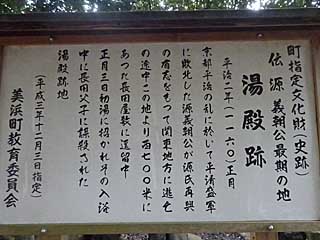 町指定文化財(史跡)
伝 源 義朝公最期の地
湯殿跡
平治二年(一一六〇)正月
京都平治の乱に於いて平清盛軍
に敗北した源義朝公が源氏再興
の有志をもって関東地方に逃亡
の途中この地より西七〇〇米に
あった長田屋敷に逗留中
正月三日初湯に招かれその入浴
中に長田父子に謀殺された
湯殿跡地
(平成三年十二月三日指定)
美浜町教育委員会